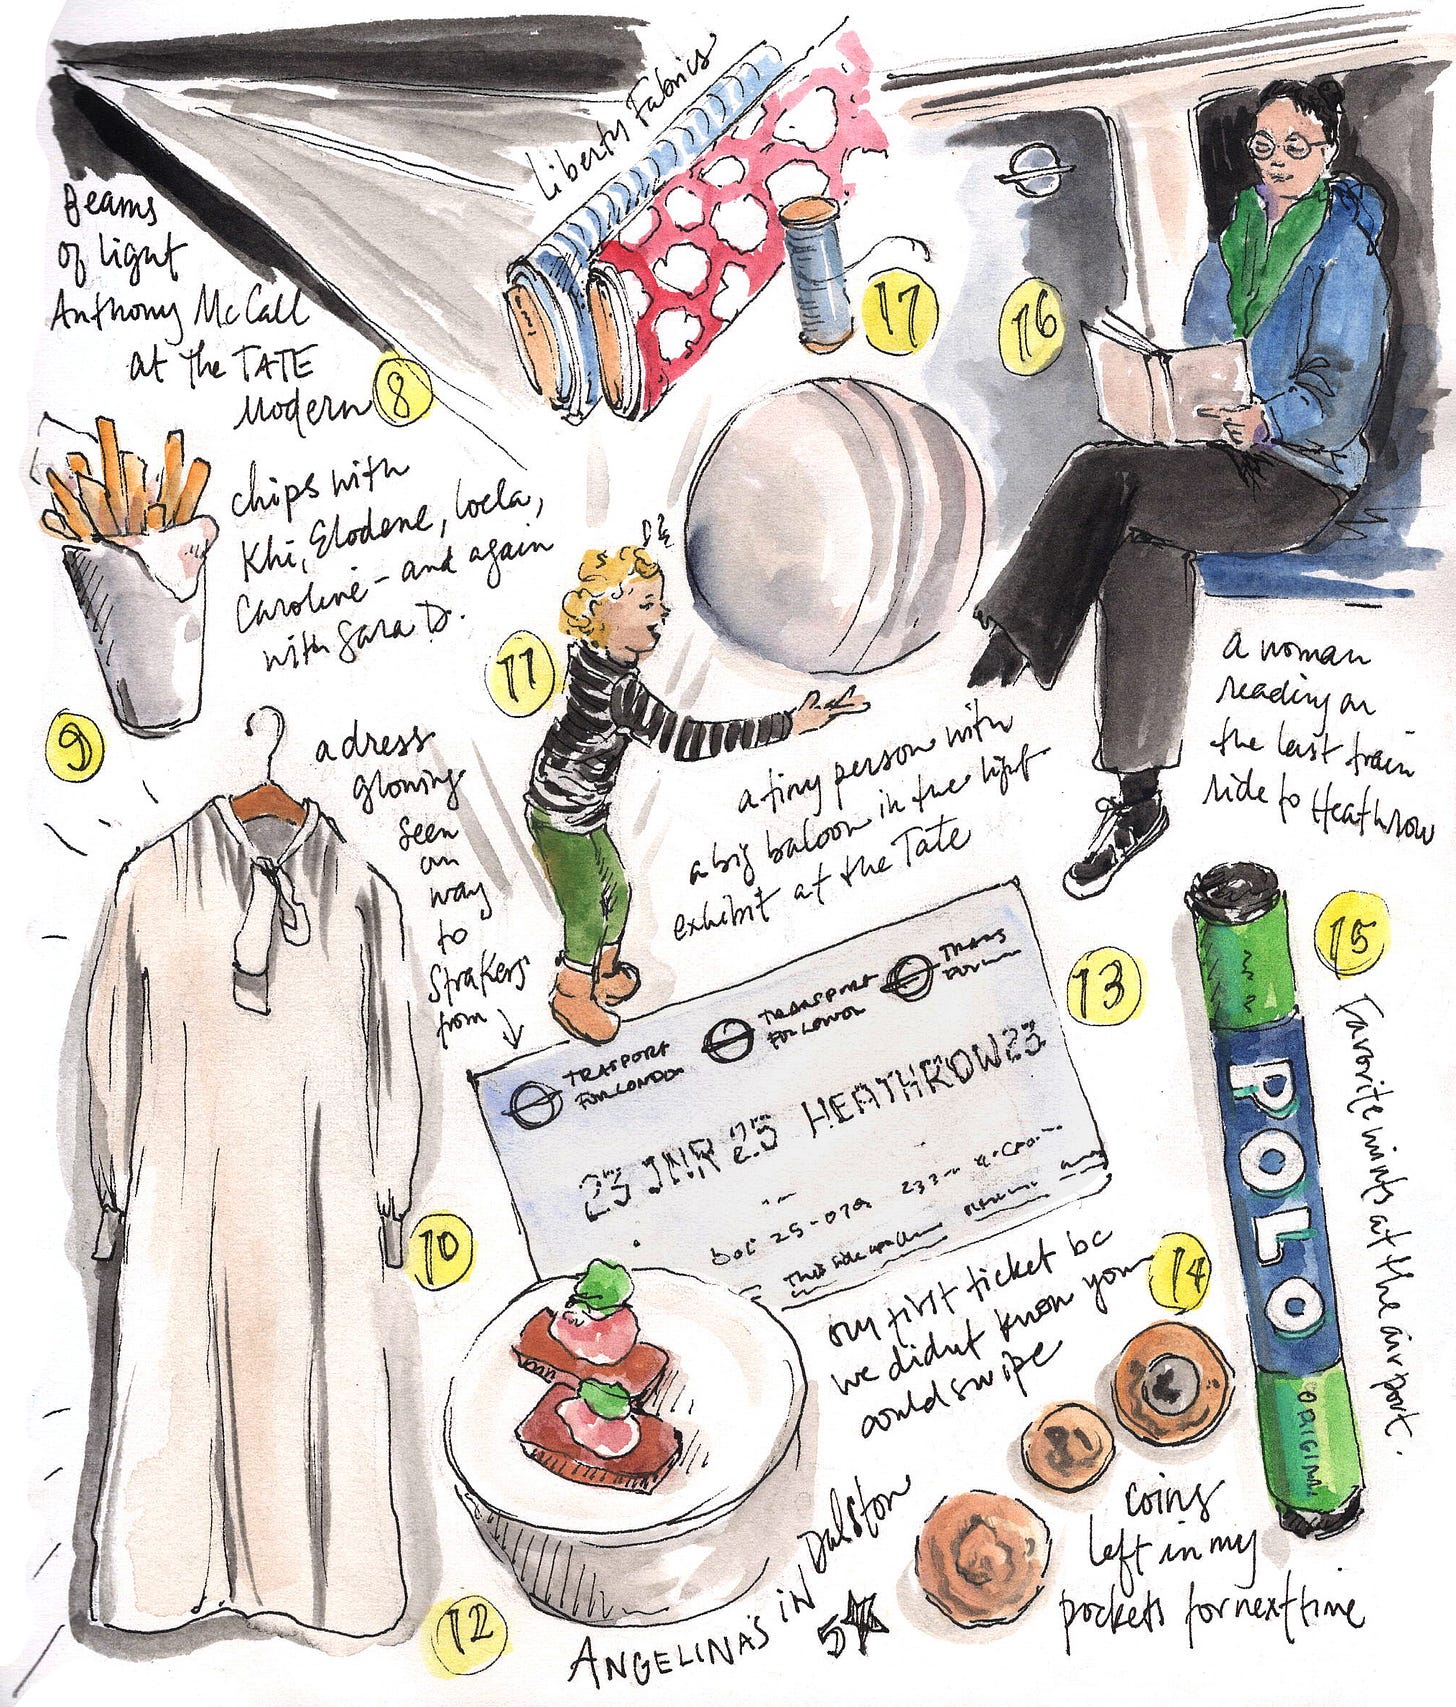 Beams
of light
Anthony McCall
at the TATE
Modern
8
Liberty Fabrics
17
16
chips with
Khi, Elodene, Loela,
Caroline - and again
with Sara D.
9
11
a tiny person with
a big baloon in the light
exhibit at the Tate
a woman
reading on
the last train
ride to Heathrow
a dress
glowing
seen
on
way
to
Strakers
from
10
13
TRASPORT
FOR LONDON
TRANSPORT
FOR LONDON
TRANS
FOR
23 JNR 25 HEATHROW23
25-079
This side
our first ticket bc
we didnt know you
could swipe
14
15
Favorite mints at the airport.
POLO
ORIGINAL
coins
left in my
pockets for next time
12
ANGELINAS IN Dalston
5